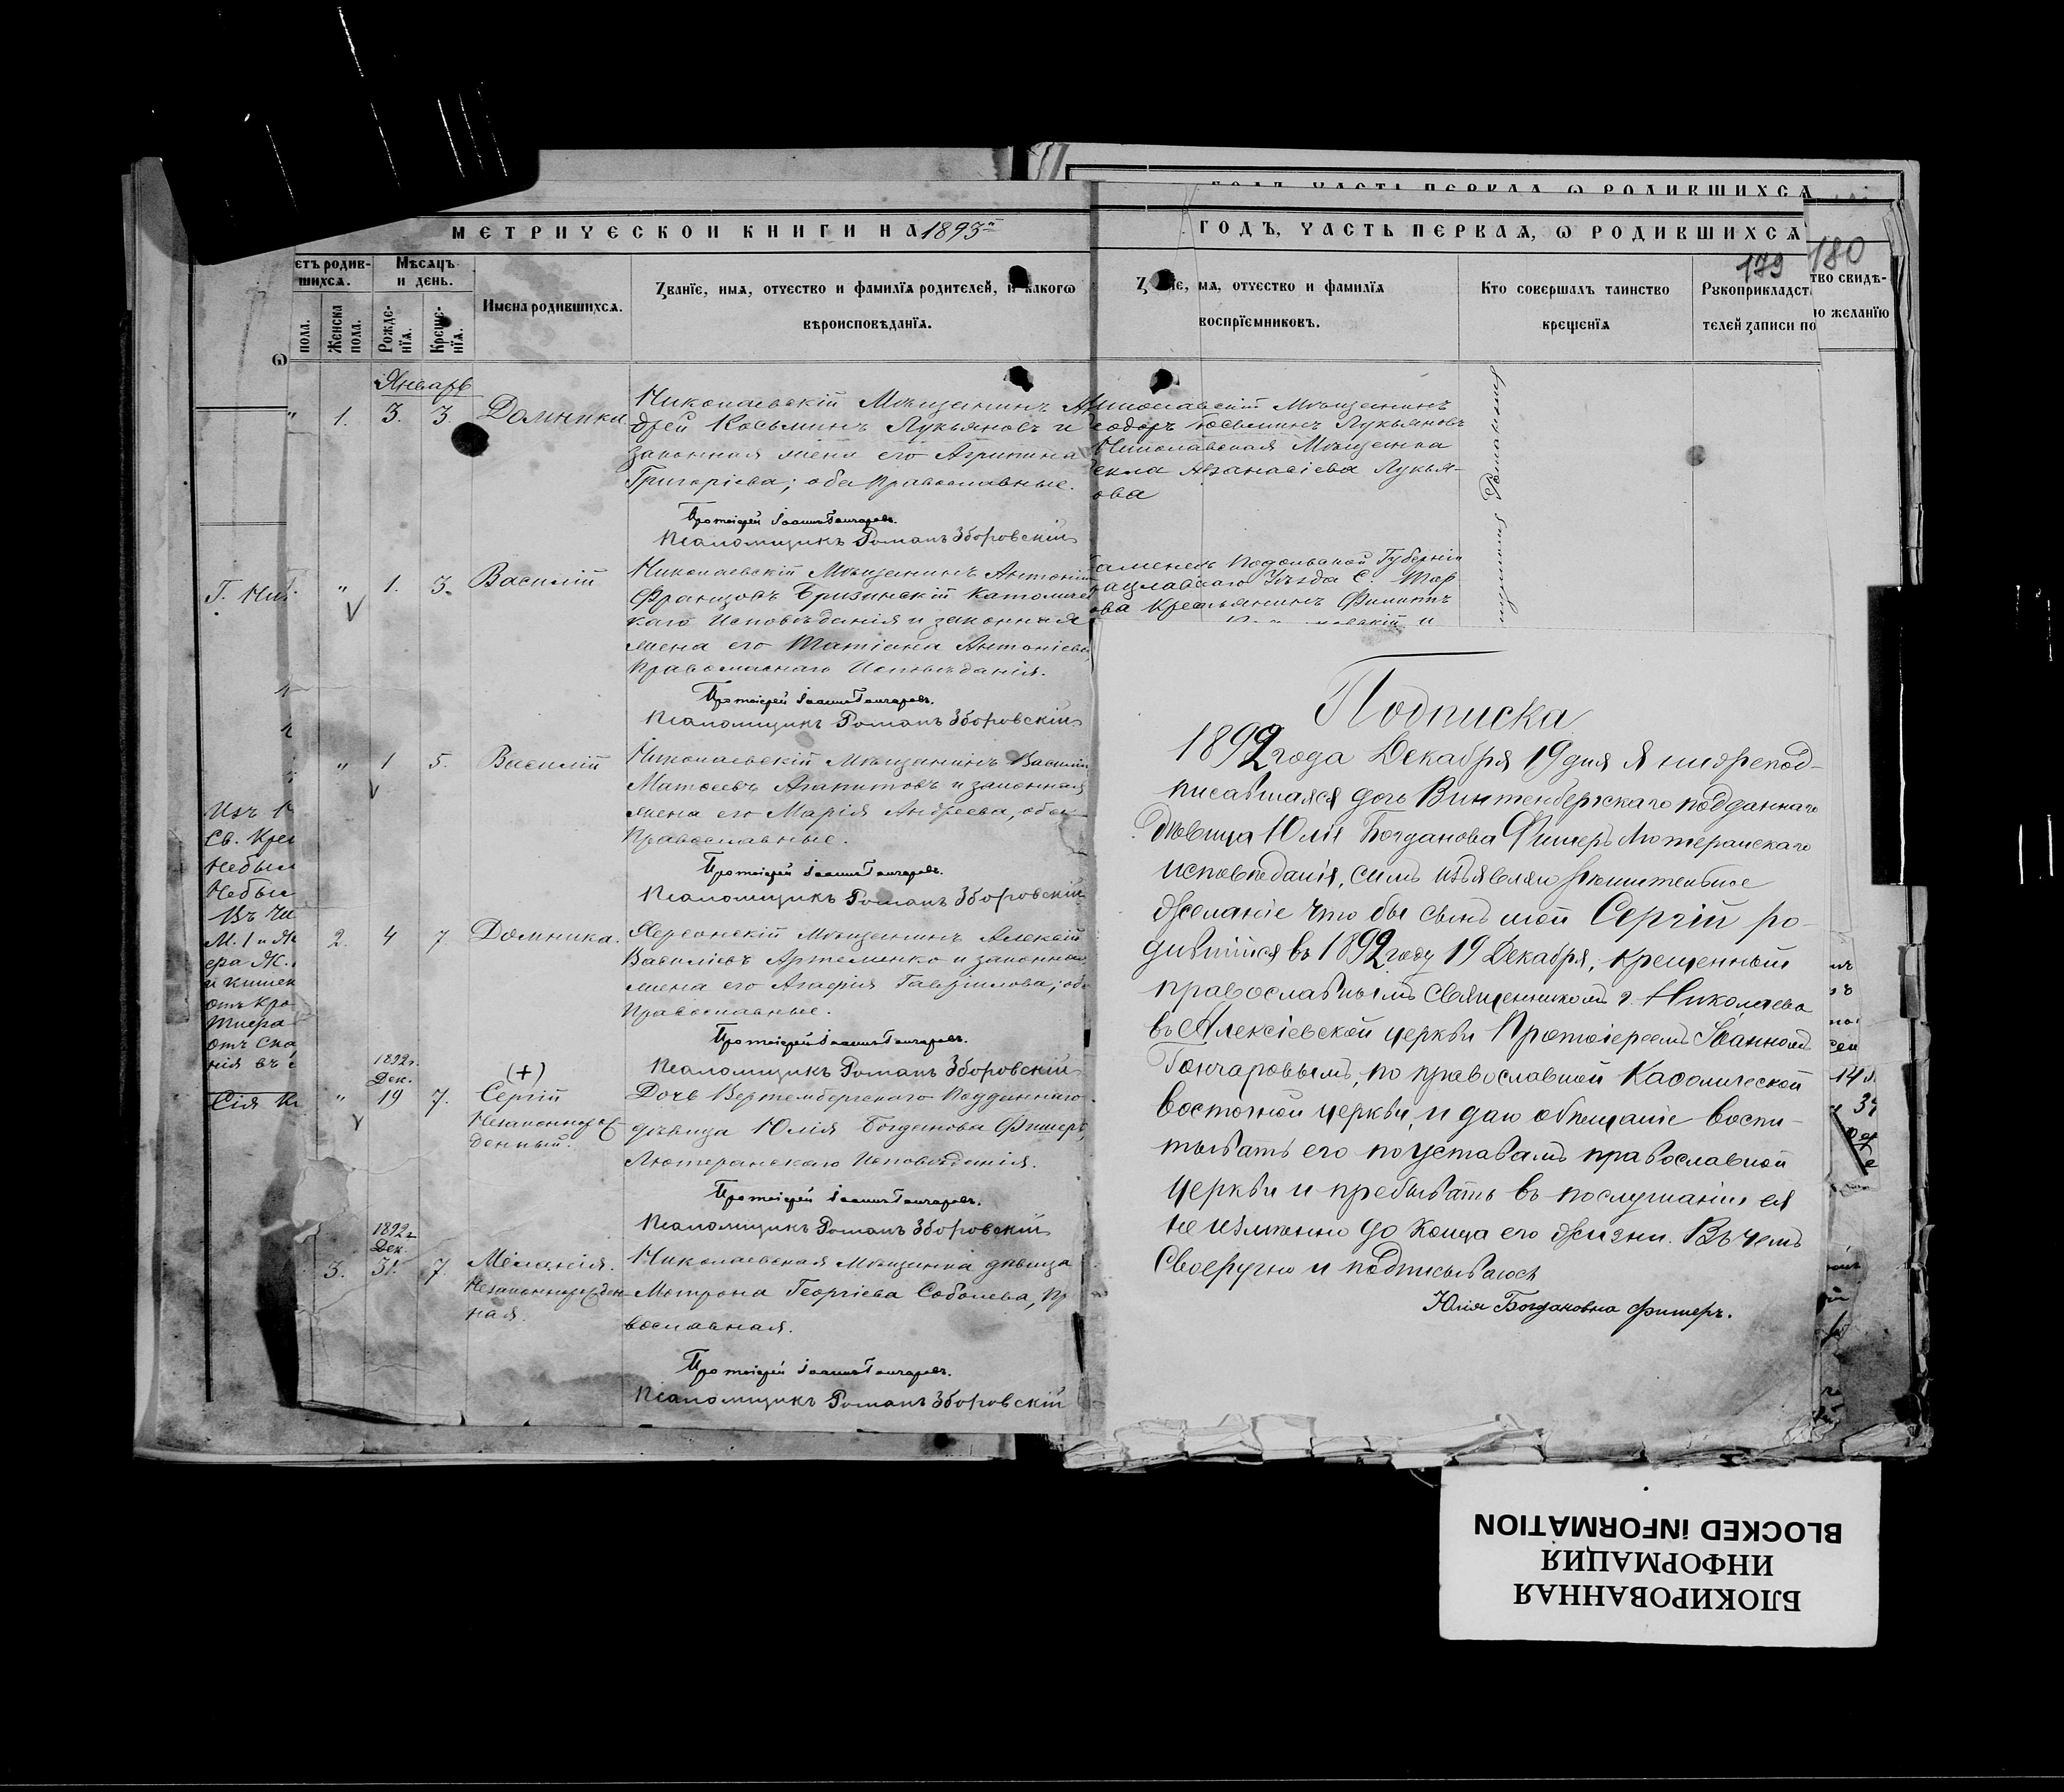 МЕТРИЧЕСКОЙ КНИГИ НА 1893й
ГОДЪ, ЧАСТЬ ПЕРВАЯ, Ѡ РОДИВШИХСЯ
ГОДЪ, ЧАСТЬ ПЕРВАЯ, Ѡ РОДИВШИХСЯ
179
180
етъ родив-
шихся.
Мѣсяцъ
и день.
Имена родившихся.
Званіе, имя, отчество и фамилія родителей, и какогѡ
вѣроисповѣданія.
пола.
Женска
пола.
Рожде-
нія.
Креще-
нія.
мя, отчество и фамилія
воспріемниковъ.
Кто совершалъ таинство
крещенія
Рукоприкладст
телей записи по
тво свидѣ-
желанію
Январь
" 1. 3. 3. Домника
Николаевскій Мѣщанинъ Ан
дрей Косьминъ Лукьяновъ и
законная жена его Агрипина
Григоріева; оба Православные.
Протоіерей Іоаннъ Гончаровъ.
Псаломщикъ Романъ Зборовскій
Николаевскій Мѣщанинъ
еодоръ Косьминъ Лукьяновъ
Николаевская Мѣщанка
екла Аѳанасіева Лукья-
ова
" 1. 3. Василій
Николаевскій Мѣщанинъ Антоній
Францовъ Бризинскій Католичес
каго Исповѣданія и законная
жена его Татіана Антоніева,
Православнаго Исповѣданія.
Протоіерей Іоаннъ Гончаровъ.
Псаломщикъ Романъ Зборовскій
аменецъ Подольской Губерніи
рацлавскаго Уѣзда С.
ова Крестьянинъ Филиппъ
" 1 5. Василій
Николаевскій Мѣщанинъ Василій
Матѳеевъ Агапитовъ и законная
жена его Марія Андреева, оба
Православные.
Протоіерей Іоаннъ Гончаровъ.
Псаломщикъ Романъ Зборовскій
2. 4 7 Домника.
Херсонскій Мѣщанинъ Алексій
Василіевъ Артеменко и законная
жена его Агафія Гавриилова; оба
Православные.
Протоіерей Іоаннъ Гончаровъ.
Псаломщикъ Романъ Зборовскій
1892г.
Дек.
(+)
" 19 7. Сергій
Незаконнорож
денный.
Дочь Вертембергскаго Подданнаго
дѣвица Юлія Богданова Фишеръ,
Лютеранскаго Исповѣданія.
Протоіерей Іоаннъ Гончаровъ.
Псаломщикъ Романъ Зборовскій
1892г
Дек.
3. 31. 7. Меланія.
Незаконнорожден
ная.
Николаевская Мѣщанка дѣвица
Мотрона Георгіева Соболева, Пр
вославная.
Протоіерей Іоаннъ Гончаровъ.
Псаломщикъ Романъ Зборовскій
Св. Кре
Небыл
Небыл
Сія
Подписка
1892 года Декабря 19 дня Я нижепод-
писавшаяся дочь Винтенбергскаго подданнаго
Дѣвица Юлія Богданова Фишеръ Лютеранскаго
исповѣданія, симъ изъявляю рѣшительное
желаніе что бы сынъ мой Сергій ро-
дившійся въ 1892 году 19 Декабря, крещенный
православнымъ священникомъ г. Николаева
въ Алексіевской церкви Протоіереемъ Іоанномъ
Гончаровымъ, по православной Каѳолической
восточной церкви, и даю обѣщаніе воспи-
тывать его по уставамъ православной
церкви и пребывать въ послушаніи ея
не измѣнно до конца его жизни. Въ чемъ
Своеручно и подписываюсь
Юлія Богдановна Фишеръ.
БЛОКИРОВАННАЯ
ИНФОРМАЦИЯ
BLOCKED iNFORMATION